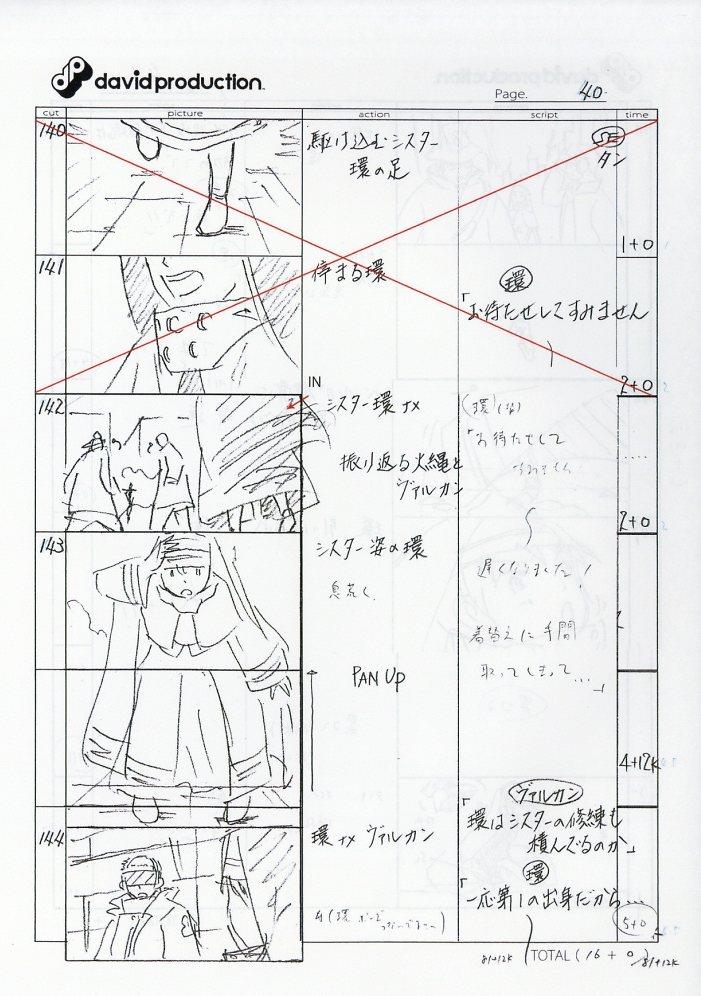 davidproduction
Page. 40
cut picture action script time
140
駆け込むシスター
環の足
SE
タン
1+0
141
停まる環
環
「お待たせしてすみません
2+0
IN
142
シスター環 ナメ
振り返る火縄と
ヴァルカン
(環)
「お待たせして
すみません
2+0
143
シスター姿の環
息荒く
遅くなりました!
着替えに手間
取ってしまって…」
PAN UP
4+12K
144
環ナメ ヴァルカン
ヴァルカン
「環はシスターの修練も
積んでるのか」
環
「一応第1の出身だから…
5+0
TOTAL ( 16 + 0 )
8+12K